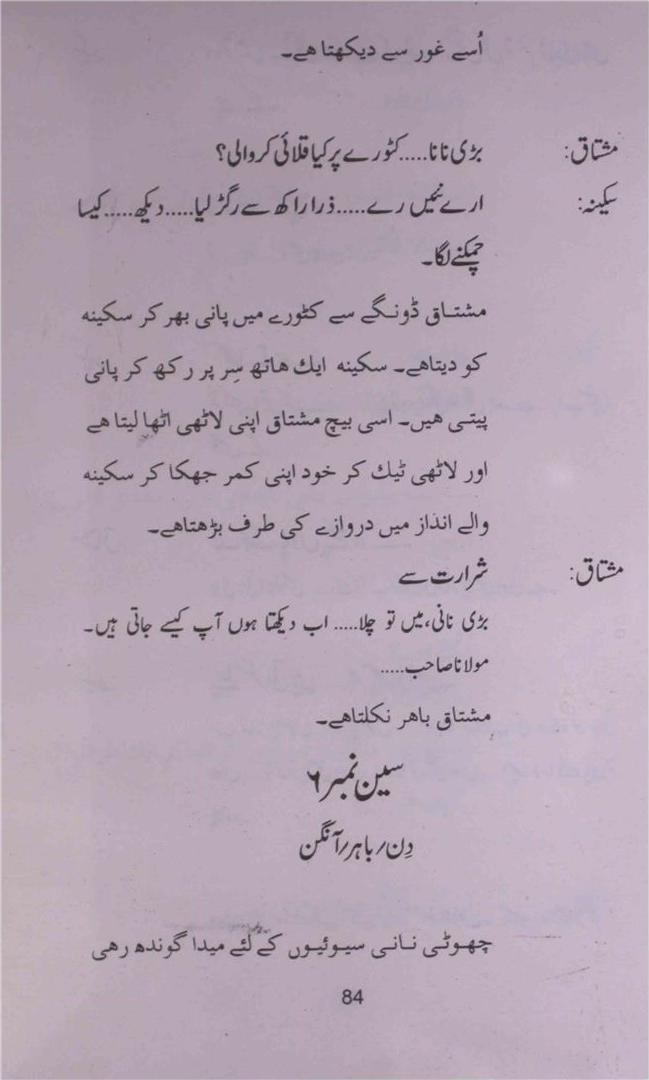 اُسے غور سے دیکھتا ہے۔
مشتاق: بڑی نانا.....کٹورے پر کیا قلائی کروالی؟
سکینہ: ارے نئیں رے.....ذرا راکھ سے رگڑ لیا.....دیکھ.....کیسا
چمکنے لگا۔
مشتاق ڈونگے سے کٹورے میں پانی بھر کر سکینہ
کو دیتاہے۔ سکینہ ایک ہاتھ سِر پر رکھ کر پانی
پیتی ہیں۔ اسی بیچ مشتاق اپنی لاٹھی اٹھا لیتا ہے
اور لاٹھی ٹیك کر خود اپنی کمر جھکا کر سکینہ
والے انداز میں دروازے کی طرف بڑھتاہے۔
مشتاق: شرارت سے
بڑی نانی، میں تو چلا..... اب دیکھتا ہوں آپ کیسے جاتی ہیں۔
مولانا صاحب.....
مشتاق باھر نکلتاہے۔
سین نمبر ۶
دِن/باہر/آنگن
چھوٹی نانی سیوئیوں کے لئے میدا گوندھ رھی
84